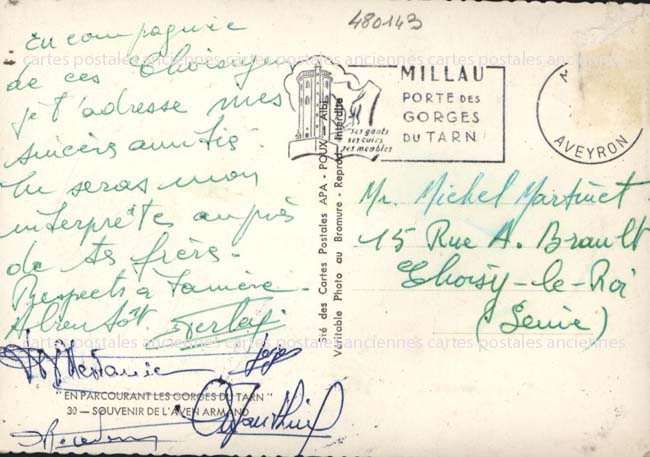 480143
En compagnie
de ces Choisyens
je t'adresse mes
sincères amitiés.
Tu seras mon
interprète auprès
de tes frères.
Respects à Tamière.
A bientôt
"EN PARCOURANT LES GORGES DU TARN"
30 — SOUVENIR DE L'AVEN ARMAND
Sté des Cartes Postales APA - POUX - Albi
Véritable Photo au Bromure - Reprod. Interdite
ses gants
ses cuirs
ses meubles
MILLAU
PORTE DES
GORGES
DU TARN
AVEYRON
Mr. Michel Martinet
15 Rue A. Brault
Choisy-le-Roi
(Seine)
cartes postales anciennes cartes postales anciennes cartes postales anciennes
cartes postales anciennes cartes postales anciennes cartes postales anciennes